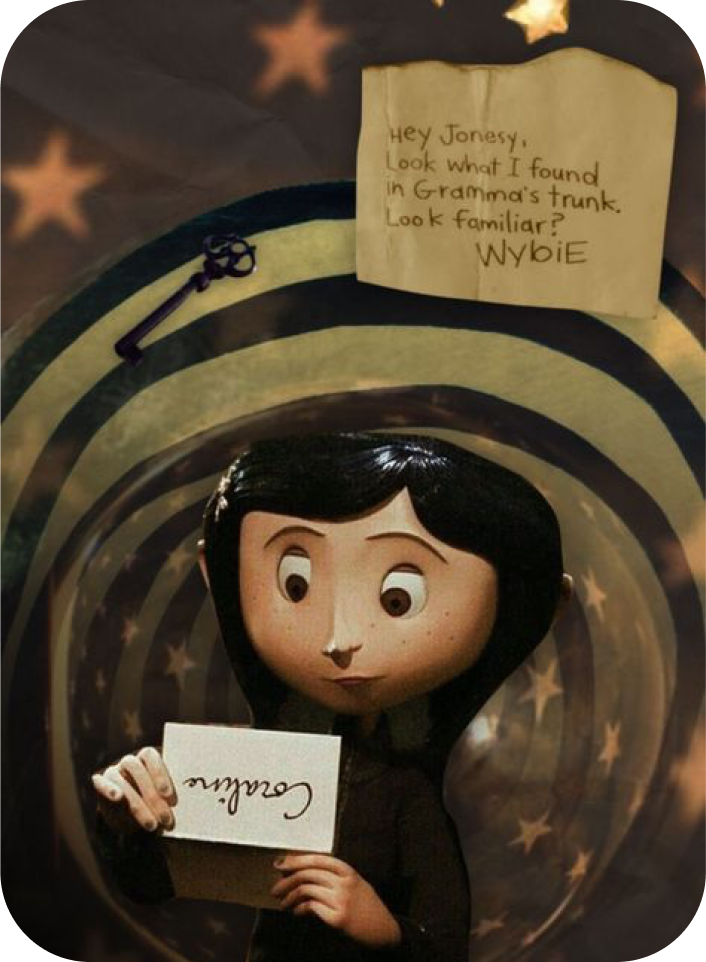 Hey Jonesy,
Look what I found
in Gramma's trunk.
Look familiar?
WYbiE
Coraline